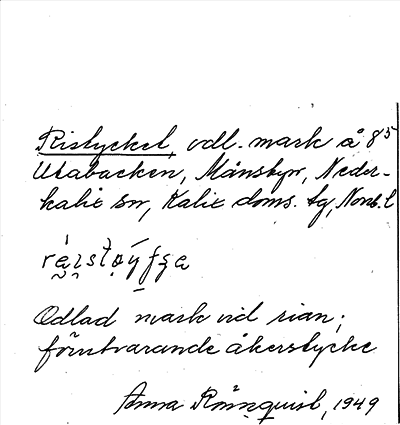 Ristyckel, odl. mark å 8⁵
Utabacken, Månsbyn, Neder-
kalix sn, Kalix doms. tg, Norrb. l

Odlad mark vid rian;
förutvarande åkerstycke
Anna Rönnquist, 1949